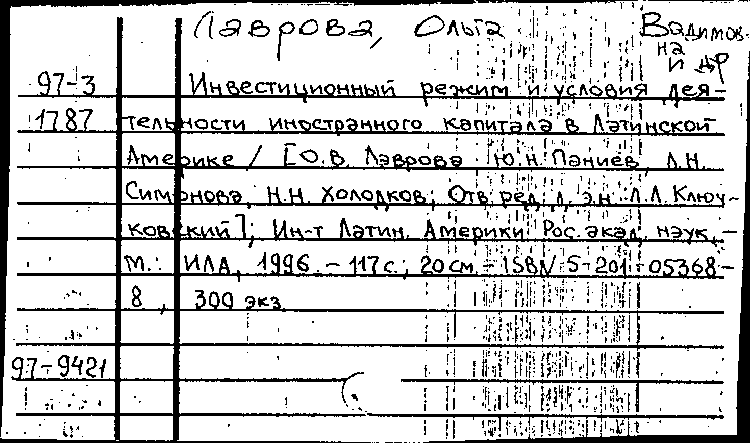 Лаврова, Ольга Вадимов-
на
и др
97-3 Инвестиционный режим и условия дея-
1787 тельности иностранного капитала в Латинской
Америке / [О.В. Лаврова Ю.Н. Паниев, Л.Н.
Симонова, Н.Н. Холодков; Отв. ред. д. э.н. Л.Л. Клоч-
ковский]; Ин-т Латин. Америки Рос. акад. наук. -
М.: ИЛА, 1996. - 117 с.; 20 см. - ISBN 5-201-05368-
8, 300 экз.
97-9421